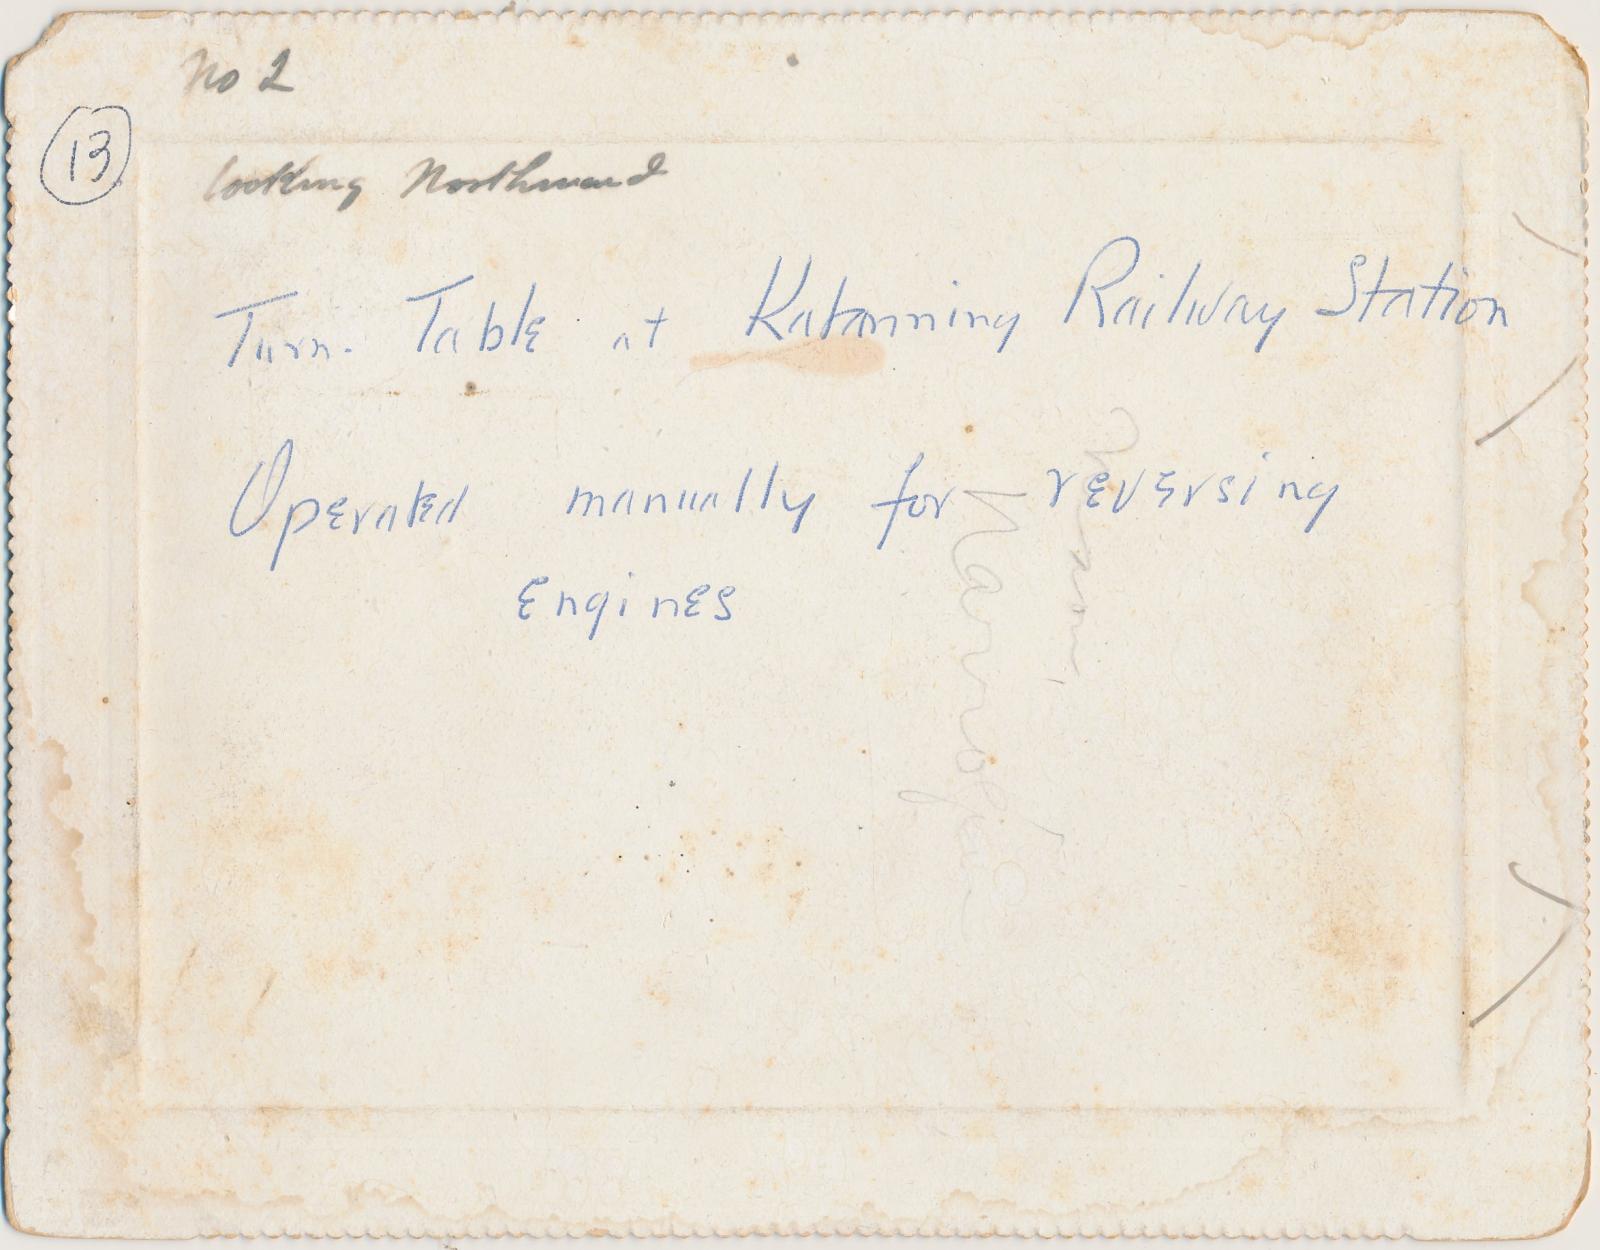 No 2
13
looking Northward
Turn. Table at Katanning Railway Station
Operated manually for reversing
Engines
Narrogin